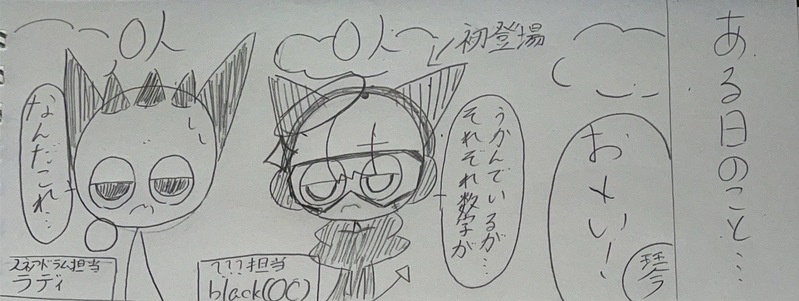 ある日のこと…
おもい!
琴
初登場
0人
それぞれ数字が
うかんでいるが…
???担当
black(OC)
0人
なんだこれ…
スネアドラム担当
ラディ